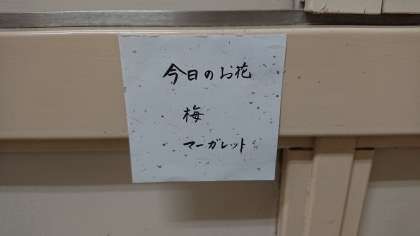 今日のお花
梅
マーガレット